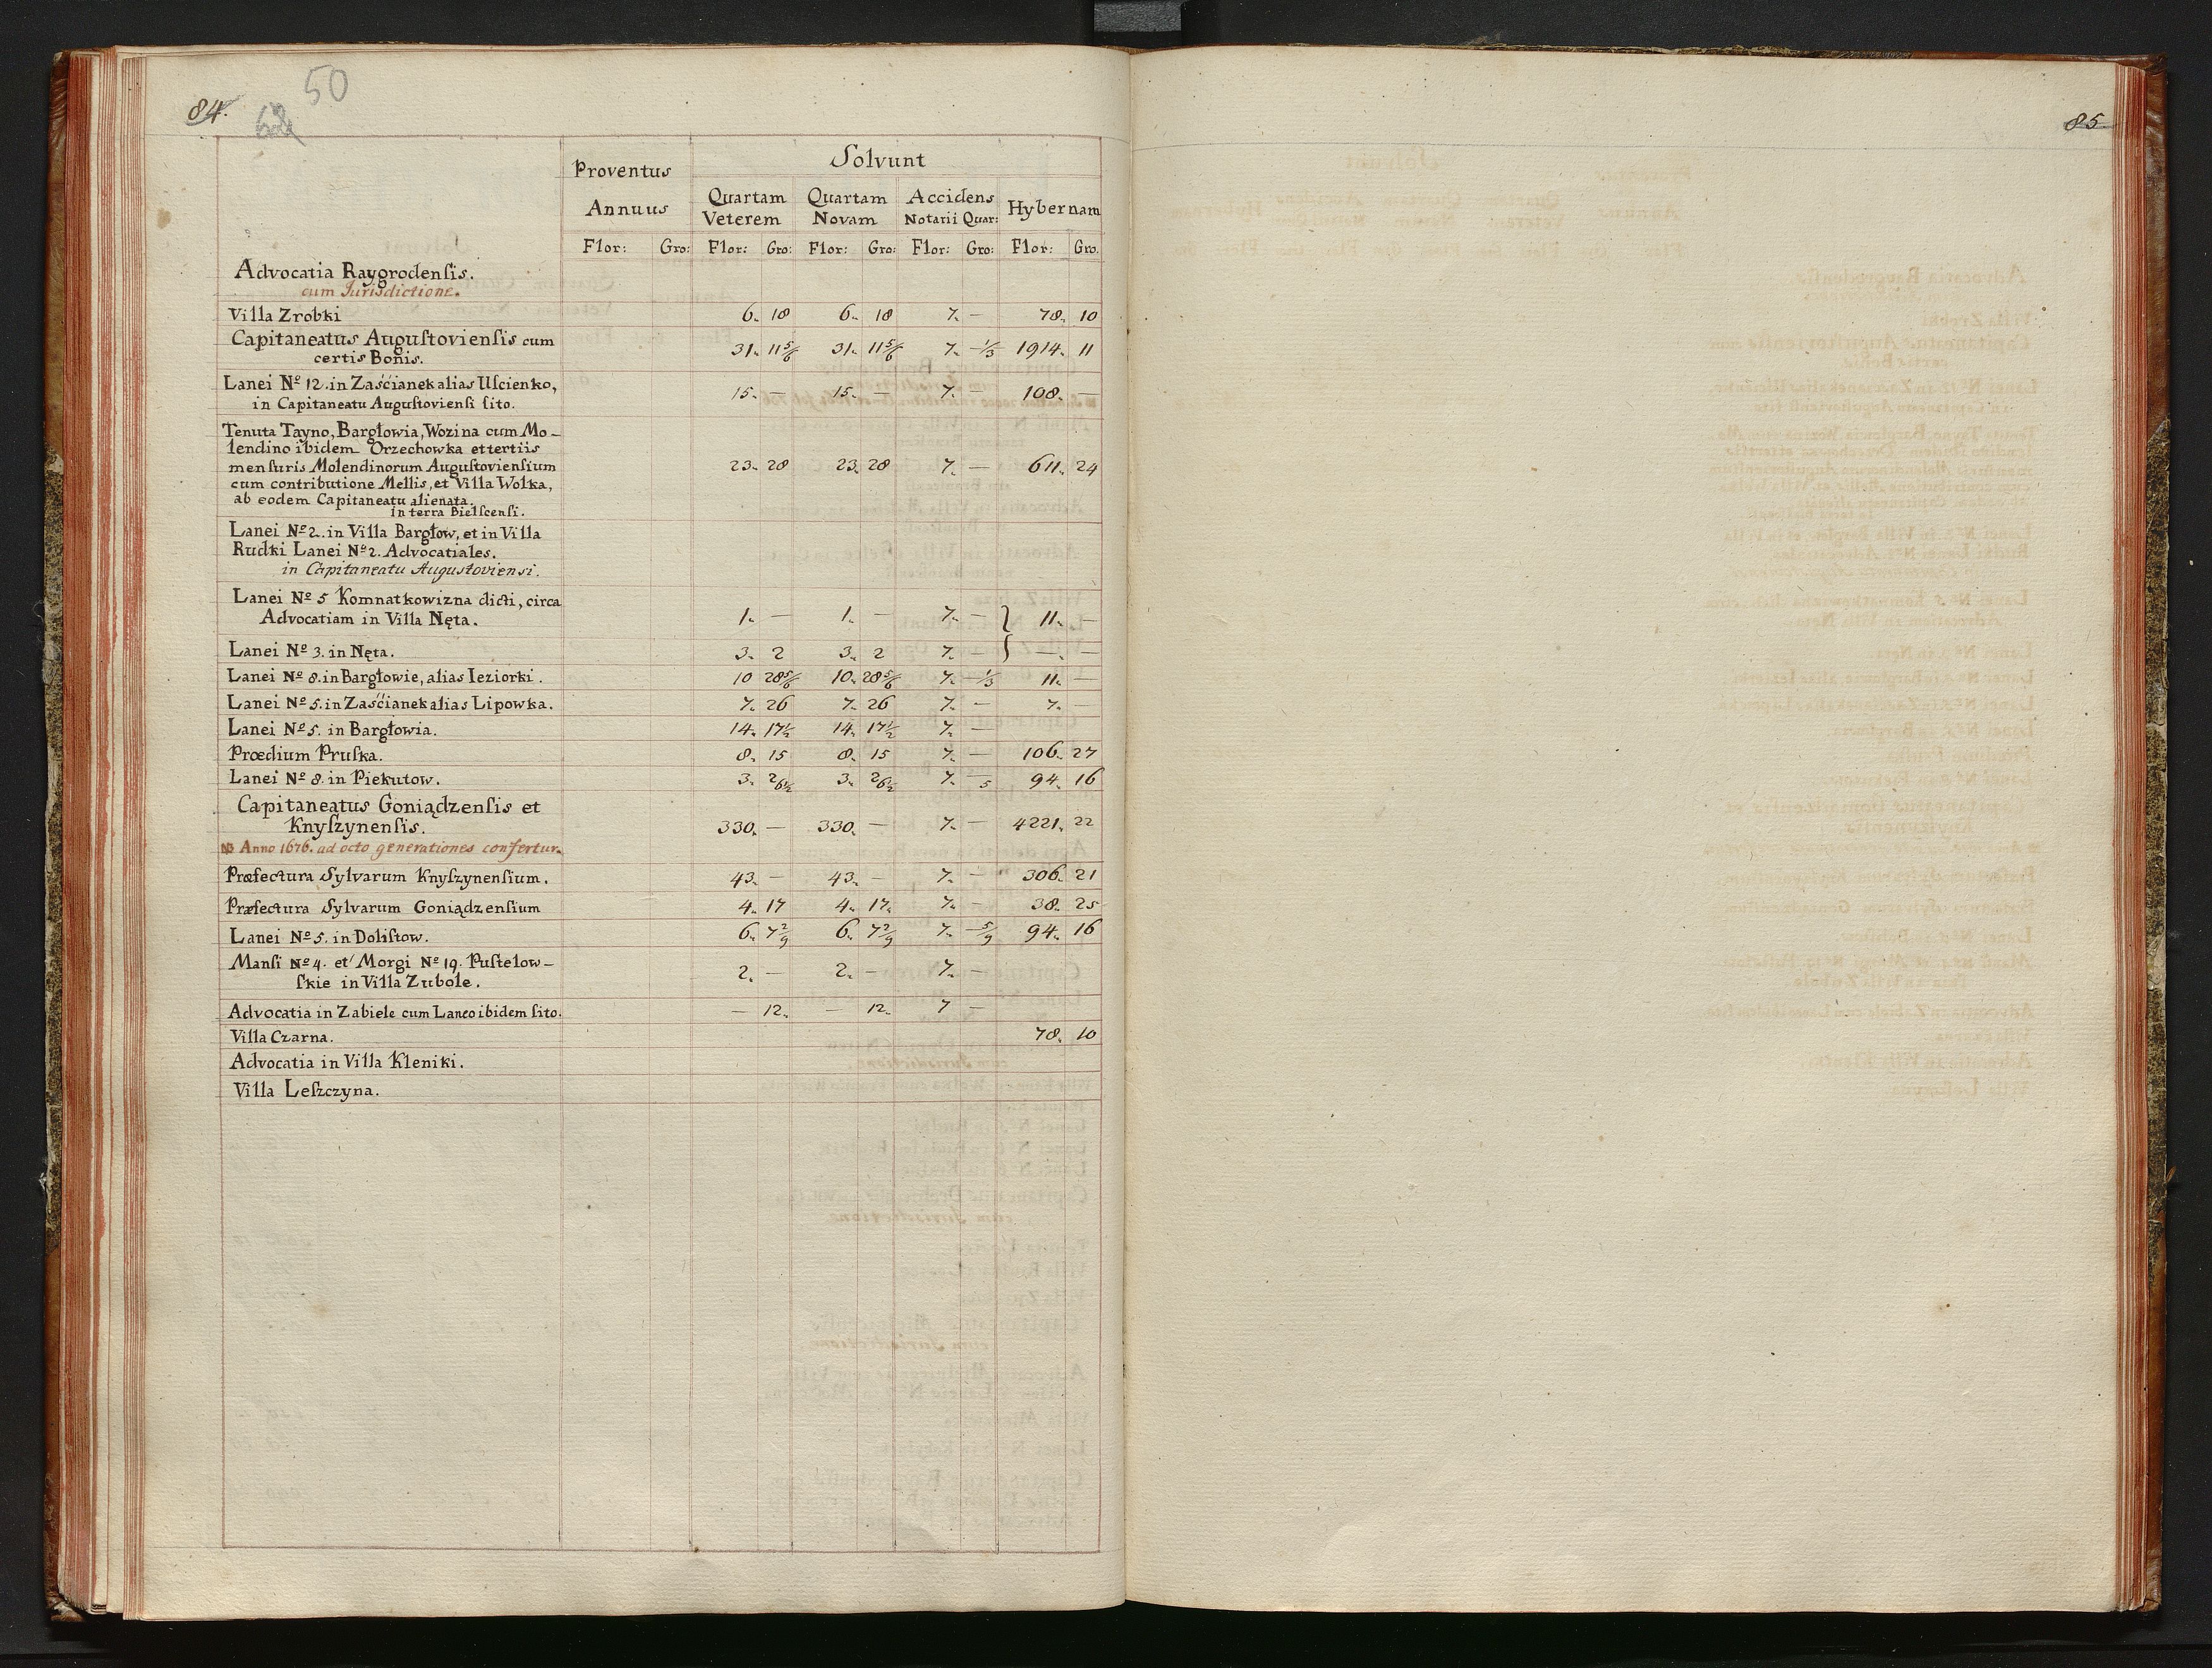 84.
50
62
85
Proventus Annuus
Solvunt
Quartam Veterem
Quartam Novam
Accidens Notarii Quar:
Hybernam
Flor: Gro: Flor: Gro: Flor: Gro: Flor: Gro: Flor: Gro.
Advocatia Raygrodenſis.
cum Jurisdictione.
Villa Zrobki 6. 18 6. 18 7. — 78. 10
Capitaneatus Auguſtovienſis cum
certis Bonis. 31. 11 5/6 31. 11 5/6 7. — 1/3 1914. 11
Lanei Nº 12. in Zaśćianek alias Uſcienko,
in Capitaneatu Auguſtovienſi ſito. 15. — 15. — 7. — 108. —
Tenuta Tayno, Bargłowia, Wozina cum Mo–
lendino ibidem Orzechowka et tertiis
menſuris Molendinorum Auguſtovienſium 23. 28 23. 28 7. — 611. 24
cum contributione Mellis, et Villa Wolka,
ab eodem Capitaneatu alienata.
in terra Bielſcenſi.
Lanei Nº 2. in Villa Bargłow, et in Villa
Rudki Lanei Nº 2. Advocatiales.
in Capitaneatu Augustoviensi.
Lanei Nº 5 Komnatkowizna dicti, circa
Advocatiam in Villa Nęta. 1. — 1. — 7. — } 11. —
Lanei Nº 3. in Nęta. 3. 2 3. 2 7. — } —. —
Lanei Nº 8. in Bargłowie, alias Ieziorki. 10 28 5/6 10. 28 5/6 7. — 1/3 11. —
Lanei Nº 5. in Zaśćianek alias Lipowka. 7. 26 7. 26 7. — 7. —
Lanei Nº 5. in Bargłowia. 14. 17 1/2 14. 17 1/2 7. —
Prœdium Pruſka. 8. 15 8. 15 7. — 106. 27
Lanei Nº 8. in Piekutow. 3. 26 1/2 3. 26 1/2 7. — 5 94. 16
Capitaneatus Goniądzenſis et
Knyſzynenſis. 330. — 330. — 7. — 4221. 22
NB Anno 1676. ad octo generationes confertur.
Præfectura Sylvarum Knyſzynenſium. 43. — 43. — 7. — 306. 21
Præfectura Sylvarum Goniądzenſium 4. 17 4. 17. 7. — 38. 25
Lanei Nº 5. in Doliſtow. 6. 7 2/9 6. 7 2/9 7. — 5/9 94. 16
Manſi Nº 4. et Morgi Nº 19. Puſtelow–
ſkie in Villa Zubole. 2. — 2. — 7. —
Advocatia in Zabiele cum Laneo ibidem ſito. — 12. — 12. 7 —
Villa Czarna. 78. 10
Advocatia in Villa Kleniki.
Villa Leſzczyna.